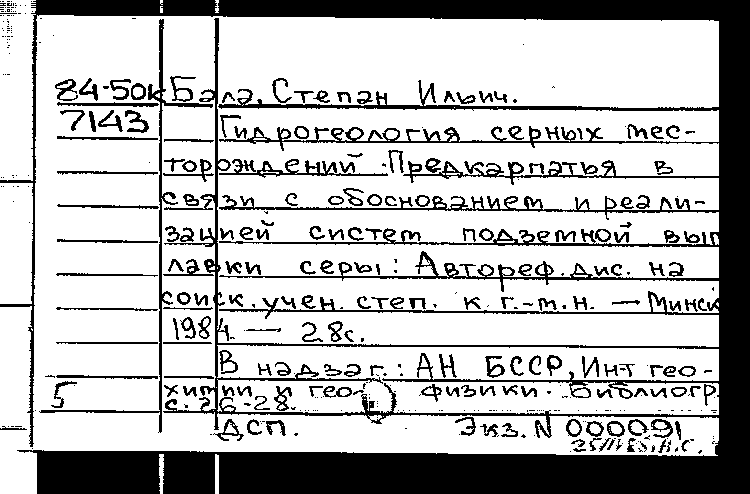 84-50к Бала, Степан Ильич.
7143 Гидрогеология серных мес-
торождений Предкарпатья в
связи с обоснованием и реали-
зацией систем подземной вып
лавки серы: Автореф. дис. на
соиск. учен. степ. к. г.-м. н. — Минск
1984 — 28с.
В надзаг.: АН БССР, Инт гео-
5 химии и гео- физики. Библиогр.
с. 26-28.
ДСП. Экз. N 000091